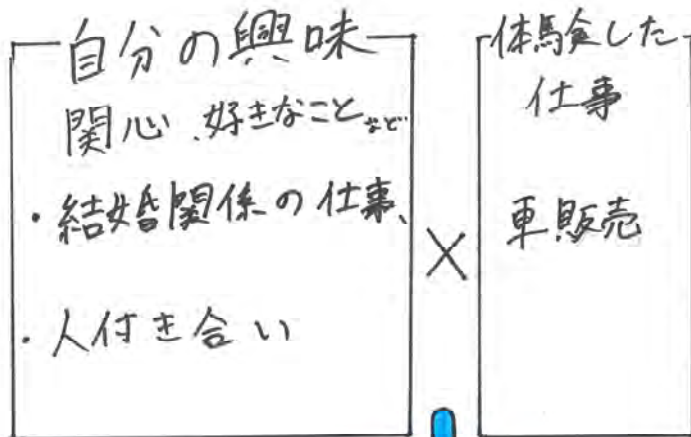 自分の興味
関心、好きなことなど
・結婚関係の仕事、
・人付き合い
×
体験した
仕事
車販売